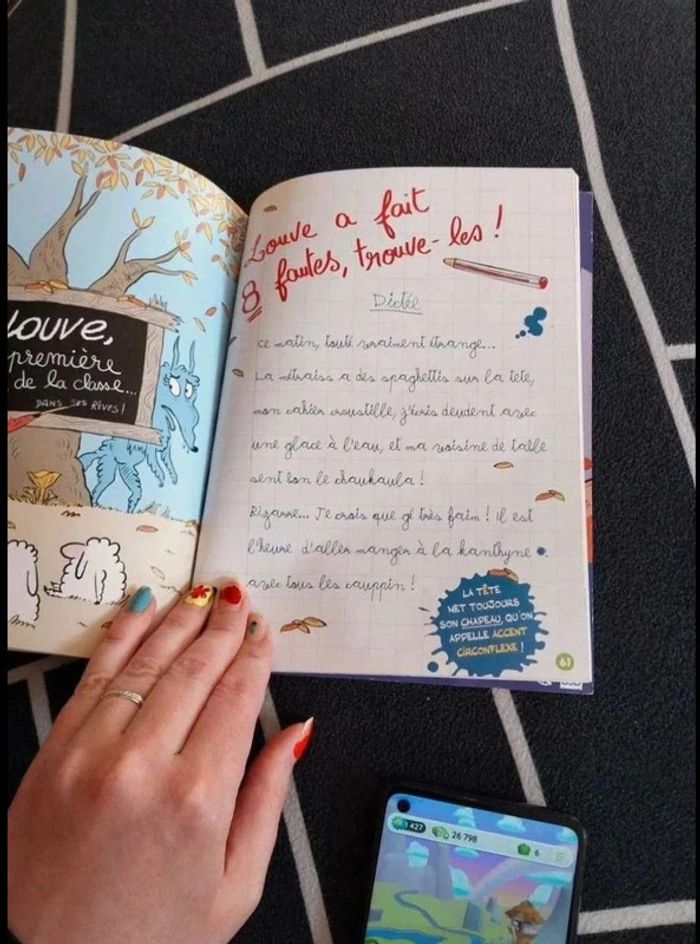 Louve,
première
de la classe...
DANS SES RÊVES !
Louve a fait
8 fautes, trouve-les !
Dictée
ce matin, touté vraiment étrange...
La métraiss a des spaghettis sur la tete,
mon cahier croustille, j'écris deudent avec
une glace à l'eau, et ma voisine de table
sent bon le chaukaula !
Bizarre... Je crois que gé très faim ! il est
l'heure d'aller manger à la kanthyne
avec tous les cauppin !
LA TÊTE
MET TOUJOURS
SON CHAPEAU, QU'ON
APPELLE ACCENT
CIRCONFLEXE !
61
1 427
26 798
6